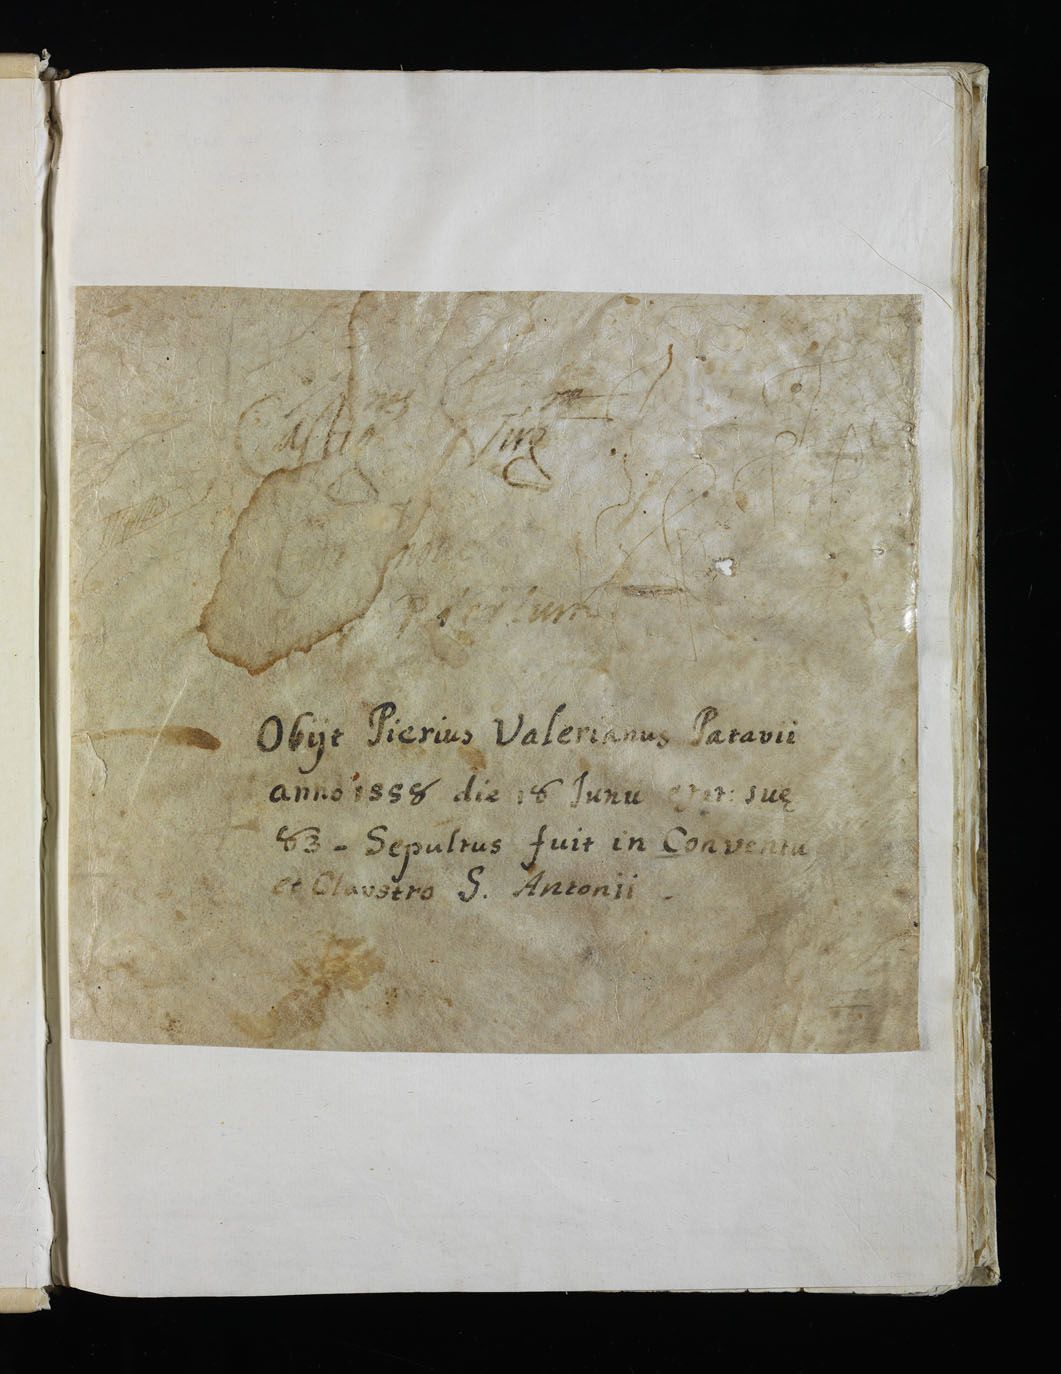 Castig nes Virg
Obijt Pierius Valerianus Patavii
anno 1558 die 18 Junii etat: suę
83 - Sepultus fuit in Conventu
et Claustro S. Antonii -